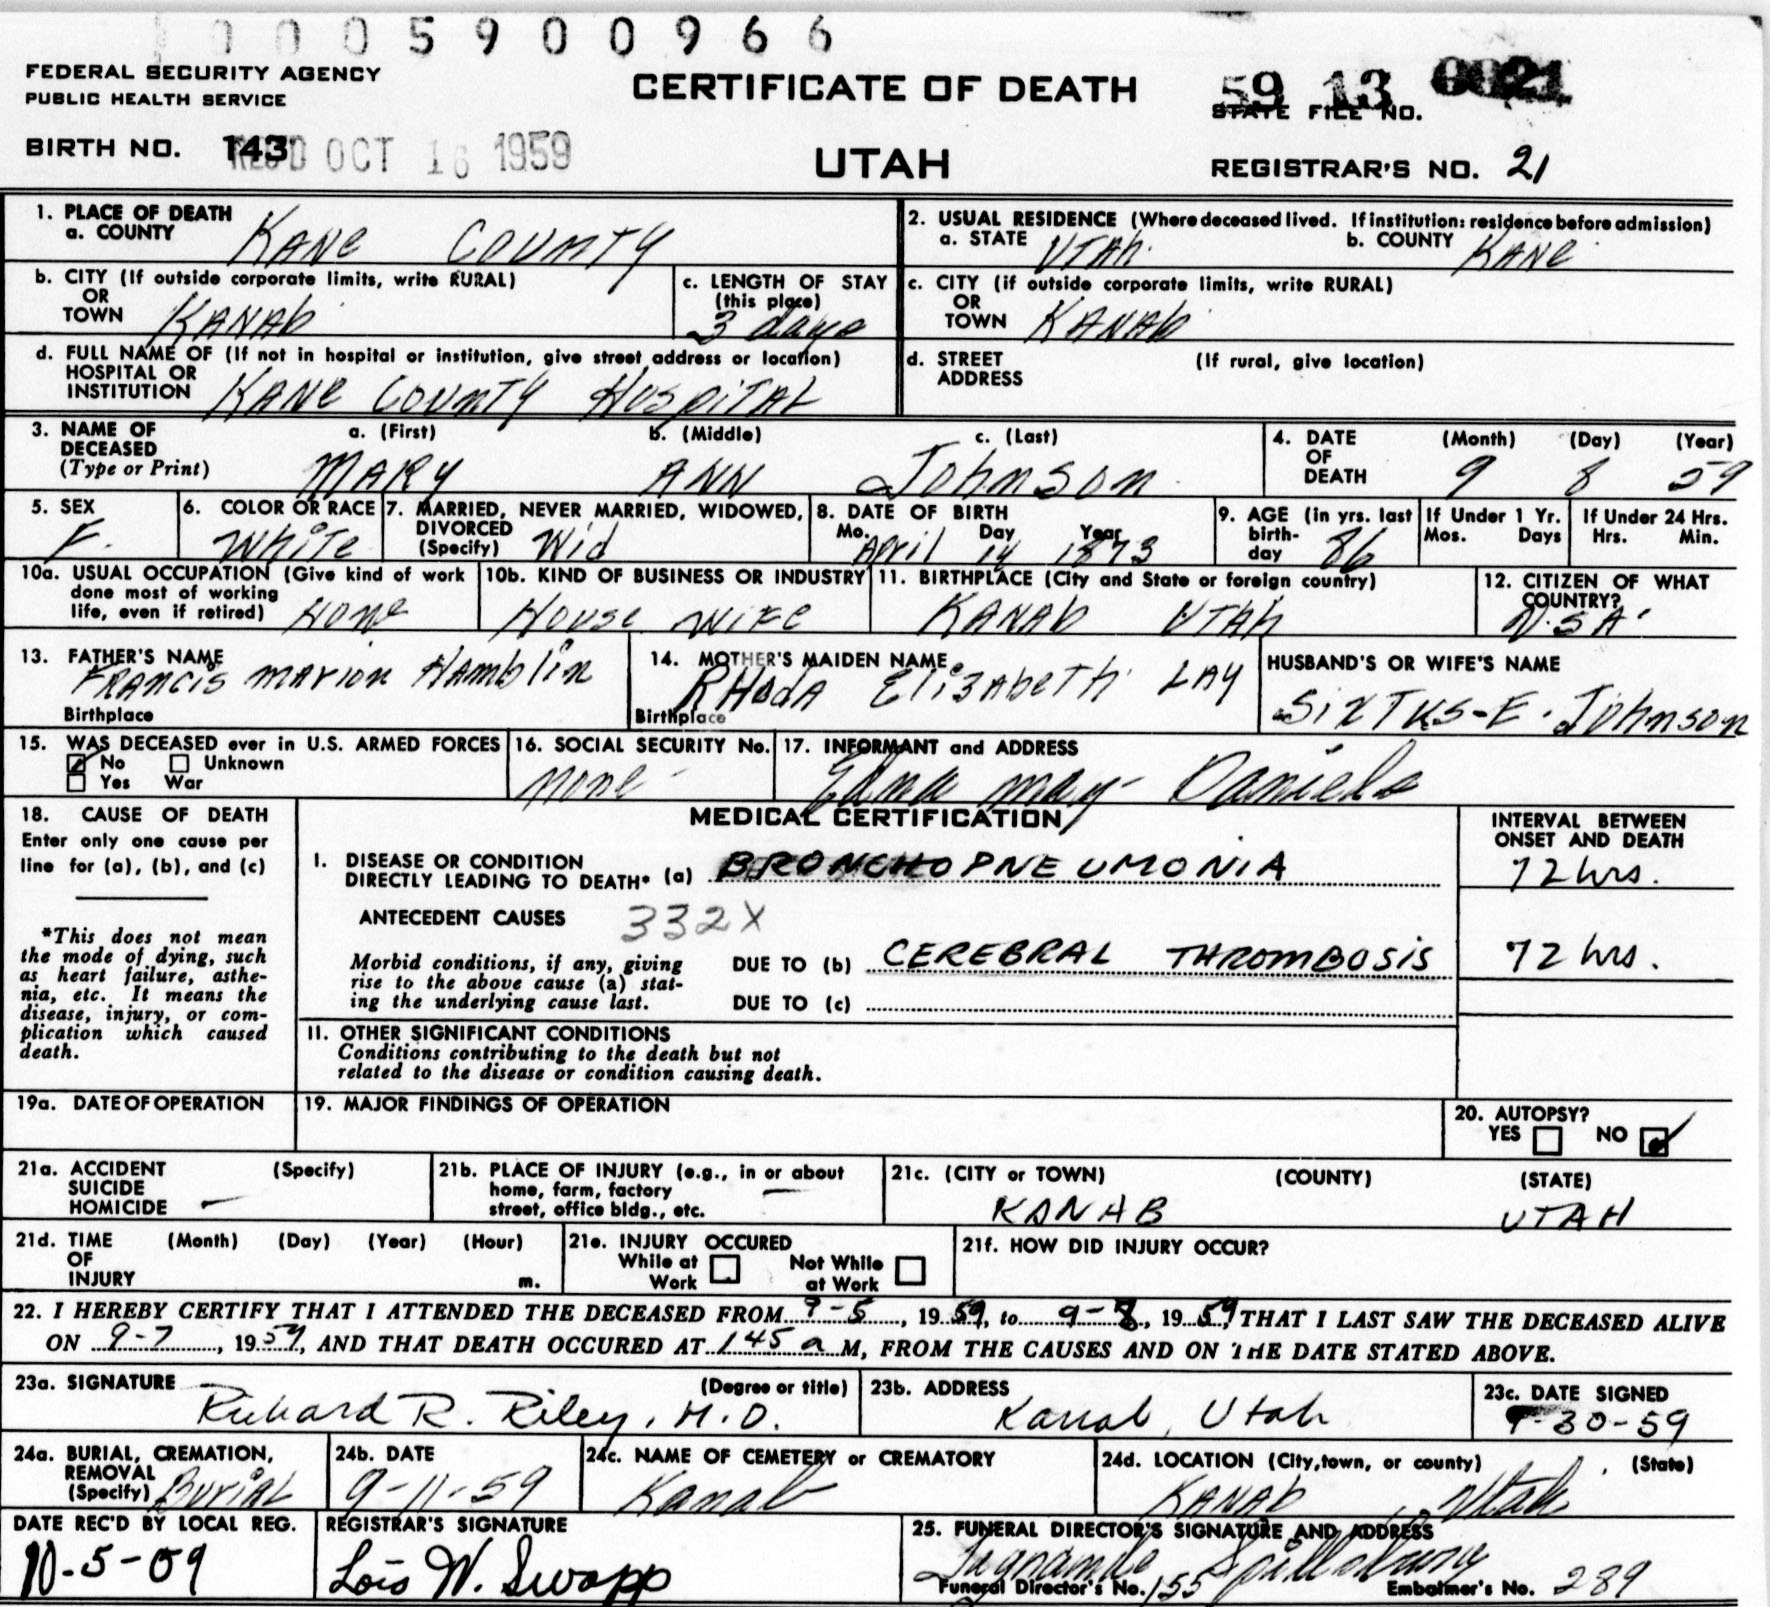 0005900966
FEDERAL SECURITY AGENCY
PUBLIC HEALTH SERVICE
CERTIFICATE OF DEATH
59 13 0021
STATE FILE NO.
BIRTH NO. 143
REC'D OCT 16 1959
UTAH
REGISTRAR'S NO. 21
1. PLACE OF DEATH
a. COUNTY KANE COUNTY
2. USUAL RESIDENCE (Where deceased lived. If institution: residence before admission)
a. STATE UTAH b. COUNTY KANE
b. CITY (If outside corporate limits, write RURAL)
OR
TOWN KANAB
c. LENGTH OF STAY
(this place)
3 days
c. CITY (if outside corporate limits, write RURAL)
OR
TOWN KANAB
d. FULL NAME OF (If not in hospital or institution, give street address or location)
HOSPITAL OR
INSTITUTION KANE COUNTY HOSPITAL
d. STREET (If rural, give location)
ADDRESS
3. NAME OF DECEASED
(Type or Print)
a. (First) b. (Middle) c. (Last)
MARY ANN Johnson
4. DATE OF DEATH
(Month) (Day) (Year)
9 8 59
5. SEX
F.
6. COLOR OR RACE
White
7. MARRIED, NEVER MARRIED, WIDOWED,
DIVORCED
(Specify) Wid
8. DATE OF BIRTH
Mo. Day Year
April 14 1873
9. AGE (in yrs. last
birth-
day 86
If Under 1 Yr.
Mos. Days
If Under 24 Hrs.
Hrs. Min.
10a. USUAL OCCUPATION (Give kind of work
done most of working
life, even if retired) Home
10b. KIND OF BUSINESS OR INDUSTRY
House wife
11. BIRTHPLACE (City and State or foreign country)
KANAB UTAH
12. CITIZEN OF WHAT
COUNTRY?
U.S.A.
13. FATHER'S NAME
FRANCIS marion Hamblin
Birthplace
14. MOTHER'S MAIDEN NAME
RHodA ElizAbeTH LAY
Birthplace
HUSBAND'S OR WIFE'S NAME
SIXTUS-E. Johnson
15. WAS DECEASED ever in U.S. ARMED FORCES
No Unknown
Yes War
16. SOCIAL SECURITY No.
none
17. INFORMANT and ADDRESS
Edna may Daniels
18. CAUSE OF DEATH
Enter only one cause per
line for (a), (b), and (c)
*This does not mean
the mode of dying, such
as heart failure, asthe-
nia, etc. It means the
disease, injury, or com-
plication which caused
death.
MEDICAL CERTIFICATION
INTERVAL BETWEEN
ONSET AND DEATH
I. DISEASE OR CONDITION
DIRECTLY LEADING TO DEATH* (a) BRONCHOPNEUMONIA 72 hrs.
ANTECEDENT CAUSES 332X
Morbid conditions, if any, giving
rise to the above cause (a) stat-
ing the underlying cause last.
DUE TO (b) CEREBRAL THROMBOSIS 72 hrs.
DUE TO (c)
II. OTHER SIGNIFICANT CONDITIONS
Conditions contributing to the death but not
related to the disease or condition causing death.
19a. DATE OF OPERATION
19. MAJOR FINDINGS OF OPERATION
20. AUTOPSY?
YES NO
21a. ACCIDENT (Specify)
SUICIDE
HOMICIDE —
21b. PLACE OF INJURY (e.g., in or about
home, farm, factory —
street, office bldg., etc.
21c. (CITY or TOWN) (COUNTY) (STATE)
KANAB UTAH
21d. TIME (Month) (Day) (Year) (Hour)
OF
INJURY m.
21e. INJURY OCCURED
While at Work Not While at Work
21f. HOW DID INJURY OCCUR?
22. I HEREBY CERTIFY THAT I ATTENDED THE DECEASED FROM 9-5, 19 59, to 9-8, 19 59, THAT I LAST SAW THE DECEASED ALIVE
ON 9-7, 19 59, AND THAT DEATH OCCURED AT 145 a M, FROM THE CAUSES AND ON THE DATE STATED ABOVE.
23a. SIGNATURE (Degree or title)
Richard R. Riley, M.D.
23b. ADDRESS
Kanab, Utah
23c. DATE SIGNED
9-30-59
24a. BURIAL, CREMATION,
REMOVAL
(Specify) Burial
24b. DATE
9-11-59
24c. NAME OF CEMETERY or CREMATORY
Kanab
24d. LOCATION (City, town, or county) (State)
KANAB, Utah
DATE REC'D BY LOCAL REG.
10-5-59
REGISTRAR'S SIGNATURE
Lois W. Swapp
25. FUNERAL DIRECTOR'S SIGNATURE AND ADDRESS
Spillsbury
Funeral Director's No. 155 Embalmer's No. 289